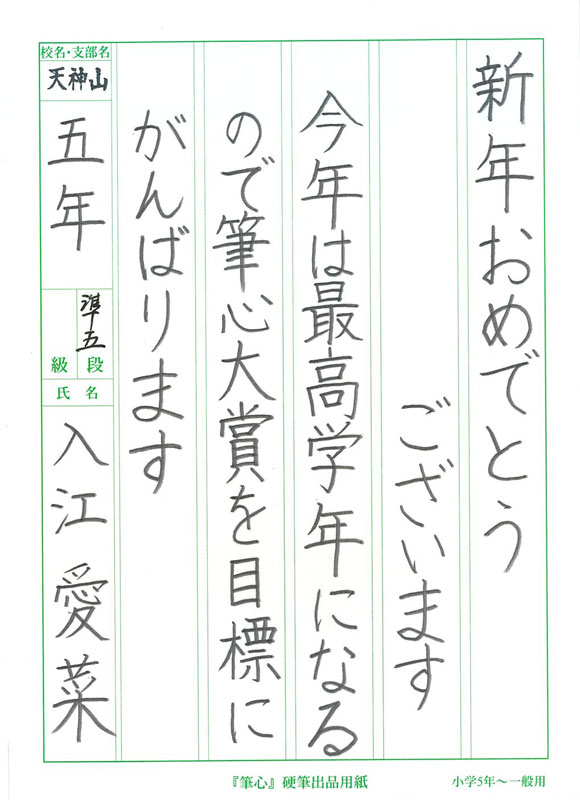 新年おめでとう
ございます
今年は最高学年になる
ので筆心大賞を目標に
がんばります
校名・支部名
天神山
五年
準五
級 段
氏名
入江愛菜
『筆心』硬筆出品用紙
小学5年〜一般用